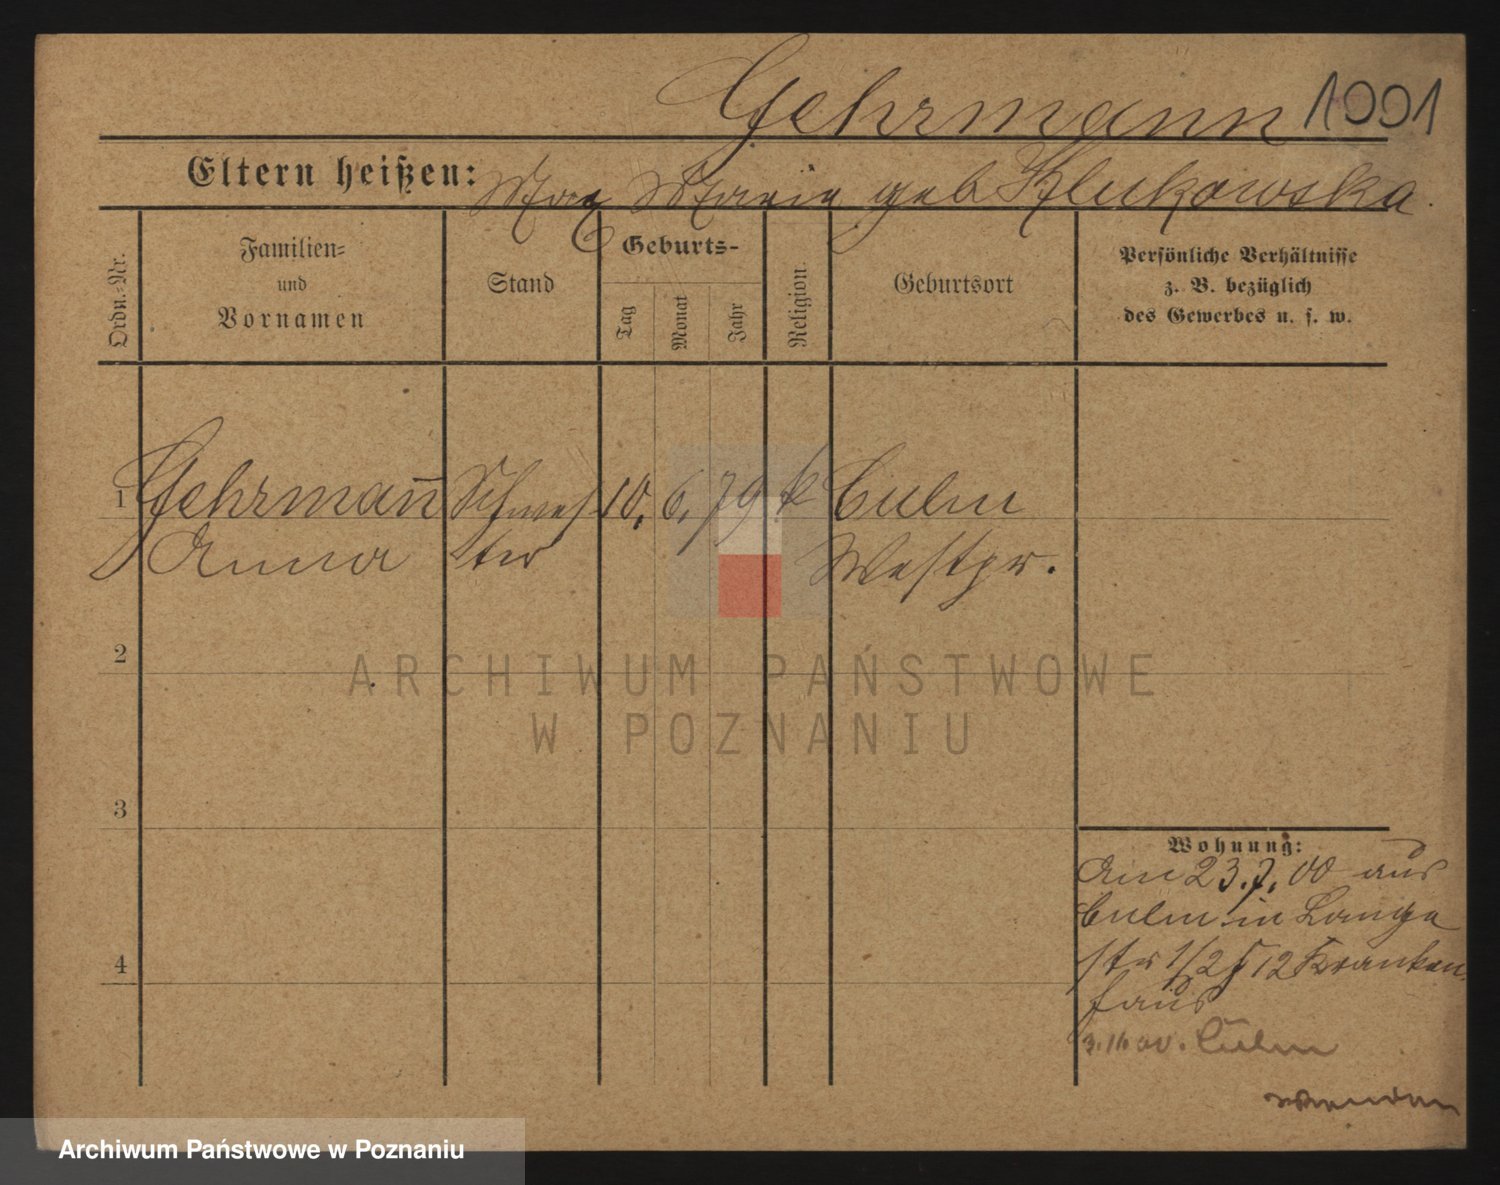 Gehrmann 1001
Eltern heißen: Max Marie geb Klukowska.
Ordn.-Nr.
Familien-
und
Vornamen
Stand
Geburts-
Tag
Monat
Jahr
Religion.
Geburtsort
Persönliche Verhältnisse
z. B. bezüglich
des Gewerbes u. s. w.
1 Gehrmañ Schwes 10. 6. 79 k Culm
Anna ter Westpr.
2
ARCHIWUM PAŃSTWOWE
W POZNANIU
3
Wohnung:
Am 23.7.00 aus
Culm in Lange
str 1/2 Kranken
haus
Culm
wenden
4
Archiwum Państwowe w Poznaniu